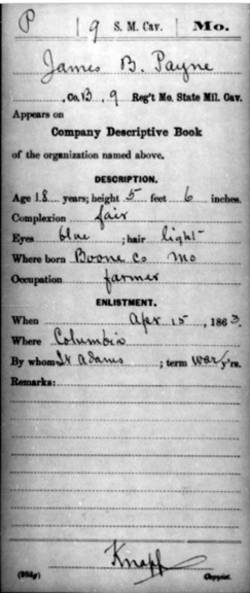 P | 9 S. M. Cav. | Mo.
James B. Payne
, Co. B, 9 Reg't Mo. State Mil. Cav.
Appears on
Company Descriptive Book
of the organization named above.
DESCRIPTION.
Age 18 years; height 5 feet 6 inches.
Complexion fair
Eyes blue ; hair light
Where born Boone Co Mo
Occupation farmer
ENLISTMENT.
When Apr 15 , 1863.
Where Columbia
By whom Lt Adams ; term war y'rs.
Remarks:
Knapp
Copyist.